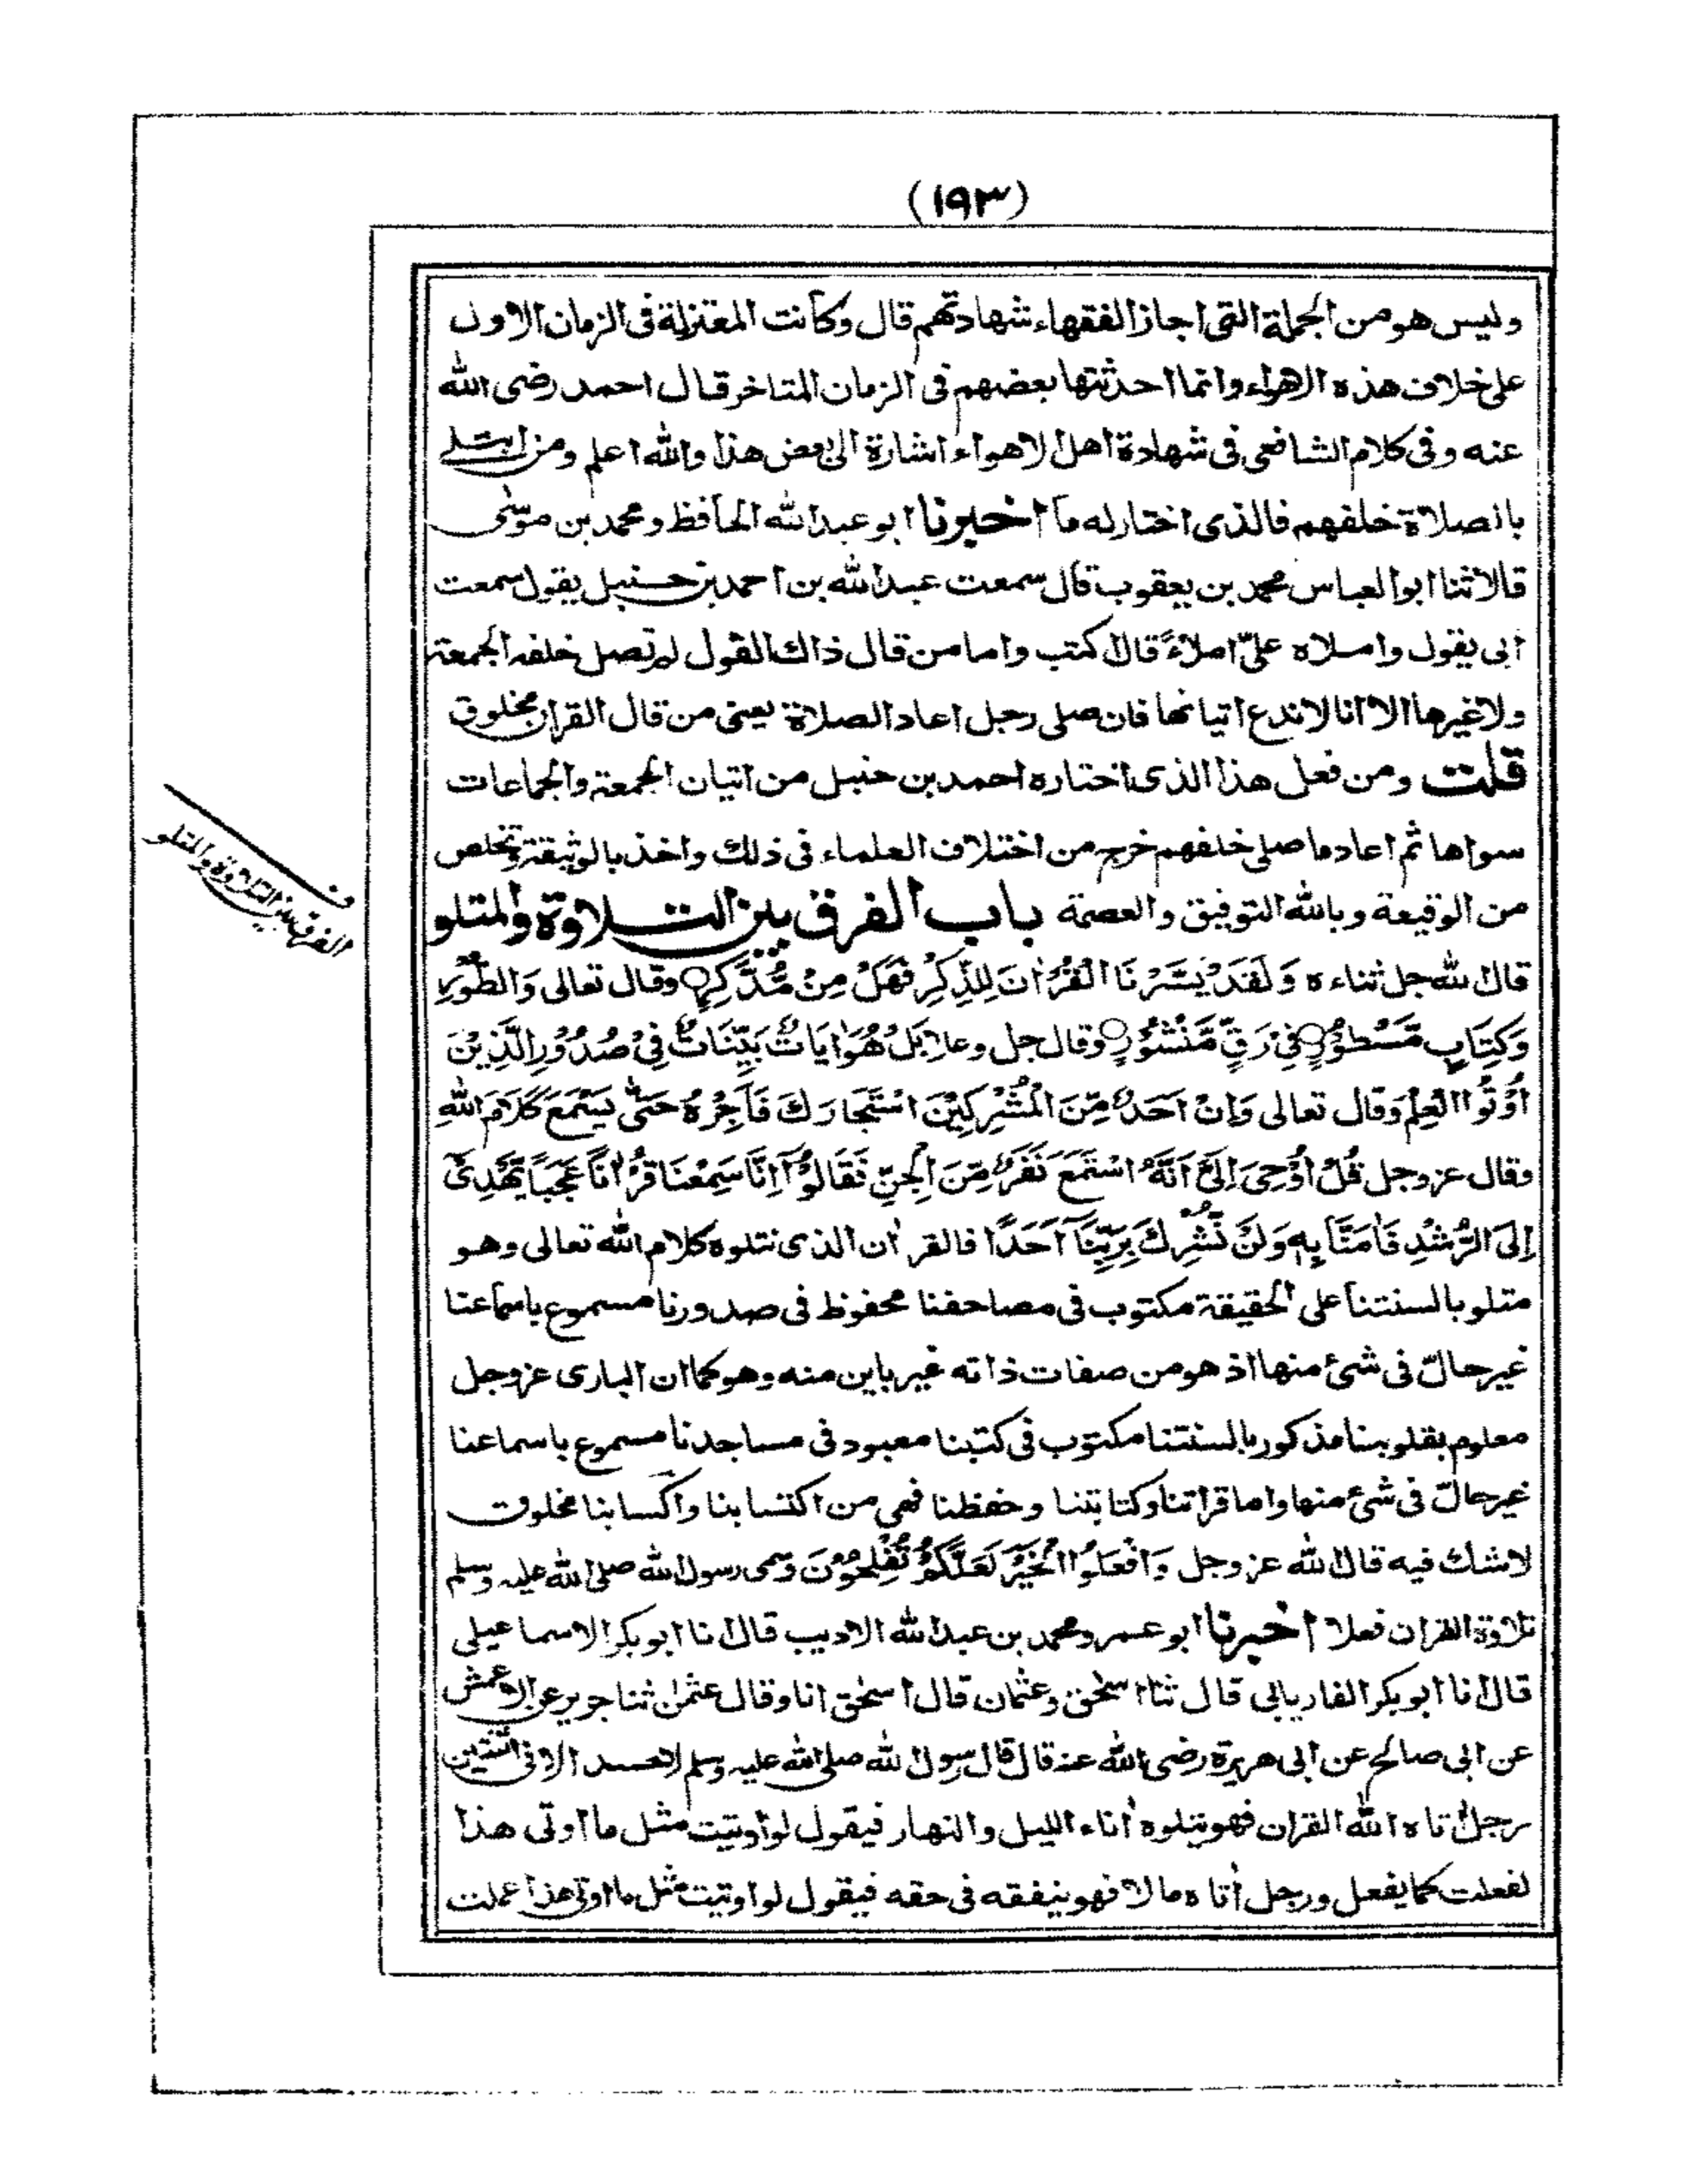 (١٩٣)
وليس هو من الجملة التى اجاز الفقهاء شهادتهم قال وكانت المعتزلة فى الزمان الاول
على خلاف هذه الاهواء وانما احدثتها بعضهم فى الزمان المتاخر قال احمد رضى الله
عنه وفى كلام الشافعى فى شهادة اهل الاهواء اشارة الى بعض هذا والله اعلم ومن ابتلے
بالصلاة خلفهم فالذى اختار له ما اخبرنا ابو عبد الله الحافظ ومحمد بن موسٰى
قالا ثنا ابو العباس محمد بن يعقوب قال سمعت عبد الله بن احمد بن حنبل يقول سمعت
ابى يقول واملاه علىّ املاءً قال اكتب واما من قال ذاك القول لم تصل خلفه الجمعة
ولا غيرها الا انا لا ندع اتيانها فان صلى رجل اعاد الصلاة يعنى من قال القران مخلوق
قلت ومن فعل هذا الذى اختاره احمد بن حنبل من اتيان الجمعة والجماعات
سواها ثم اعاد ما صلى خلفهم خرج من اختلاف العلماء فى ذلك واخذ بالوثيقة وتخلص
من الوقيعة وبالله التوفيق والعصمة باب الفرق بين التلاوة والمتلو
قال الله جل ثناءه وَلَقَدْ يَسَّرْنَا الْقُرْاٰنَ لِلذِّكْرِ فَهَلْ مِنْ مُّدَّكِرٍ وقال تعالى وَالطُّوْرِ
وَكِتَابٍ مَّسْطُوْرٍ فِىْ رَقٍّ مَّنْشُوْرٍ وقال جل وعلا بَلْ هُوَ اٰيَاتٌ بَيِّنَاتٌ فِىْ صُدُوْرِ الَّذِيْنَ
اُوْتُوا الْعِلْمَ وقال تعالى وَاِنْ اَحَدٌ مِّنَ الْمُشْرِكِيْنَ اسْتَجَارَكَ فَاَجِرْهُ حَتّٰى يَسْمَعَ كَلَامَ اللهِ
وقال عز وجل قُلْ اُوْحِىَ اِلَىَّ اَنَّهُ اسْتَمَعَ نَفَرٌ مِّنَ الْجِنِّ فَقَالُوْٓا اِنَّا سَمِعْنَا قُرْاٰنًا عَجَبًا يَّهْدِىْٓ
اِلَى الرُّشْدِ فَاٰمَنَّا بِهٖ وَلَنْ نُّشْرِكَ بِرَبِّنَآ اَحَدًا فالقراٰن الذى نتلوه كلام الله تعالى وهو
متلو بالسنتنا على الحقيقة مكتوب فى مصاحفنا محفوظ فى صدورنا مسموع باسماعنا
غير حالّ فى شئ منها اذ هو من صفات ذاته غير باين منه وهو كما ان البارى عز وجل
معلوم بقلوبنا مذكور بالسنتنا مكتوب فى كتبنا معبود فى مساجدنا مسموع باسماعنا
غير حالّ فى شئ منها واما قراتنا وكتابتنا وحفظنا فهى من اكتسابنا واكسابنا مخلوق
لا شك فيه قال الله عز وجل وَافْعَلُوا الْخَيْرَ لَعَلَّكُمْ تُفْلِحُوْنَ وسمى رسول الله صلى الله عليه وسلم
تلاوة القران فعلا اخبرنا ابو عمرو محمد بن عبد الله الاديب قال انا ابو بكر الاسماعيلى
قال انا ابو بكر الفاريابى قال ثنا اسحٰق وعثمان قال اسحٰق انا وقال عثمٰن ثنا جرير عن الاعمش
عن ابى صالح عن ابى هريرة رضى الله عنه قال قال رسول الله صلى الله عليه وسلم لا حسد الا فى اثنتين
رجل اٰتاه الله القران فهو يتلوه اٰناء الليل والنهار فيقول لو اوتيت مثل ما اوتى هذا
لفعلت كما يفعل ورجل اٰتاه مالا فهو ينفقه فى حقه فيقول لو اوتيت مثل ما اوتى هذا عملت
الفرق بين التلاوة والمتلو